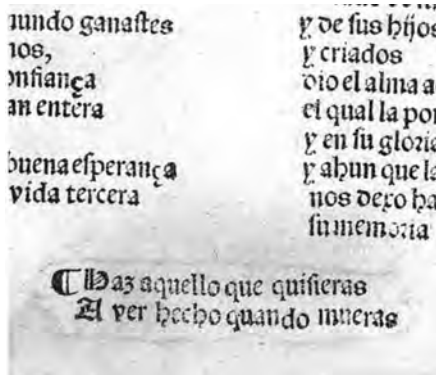 mundo ganastes
nos,
onfiança
an entera
buena esperança
vida tercera
y de sus hijos
y criados
dio el alma a
el qual la por
y en su gloria
y ahun que la
nos dexo ha
su memoria
¶ Haz aquello que quisieras
A ver hecho quando mueras